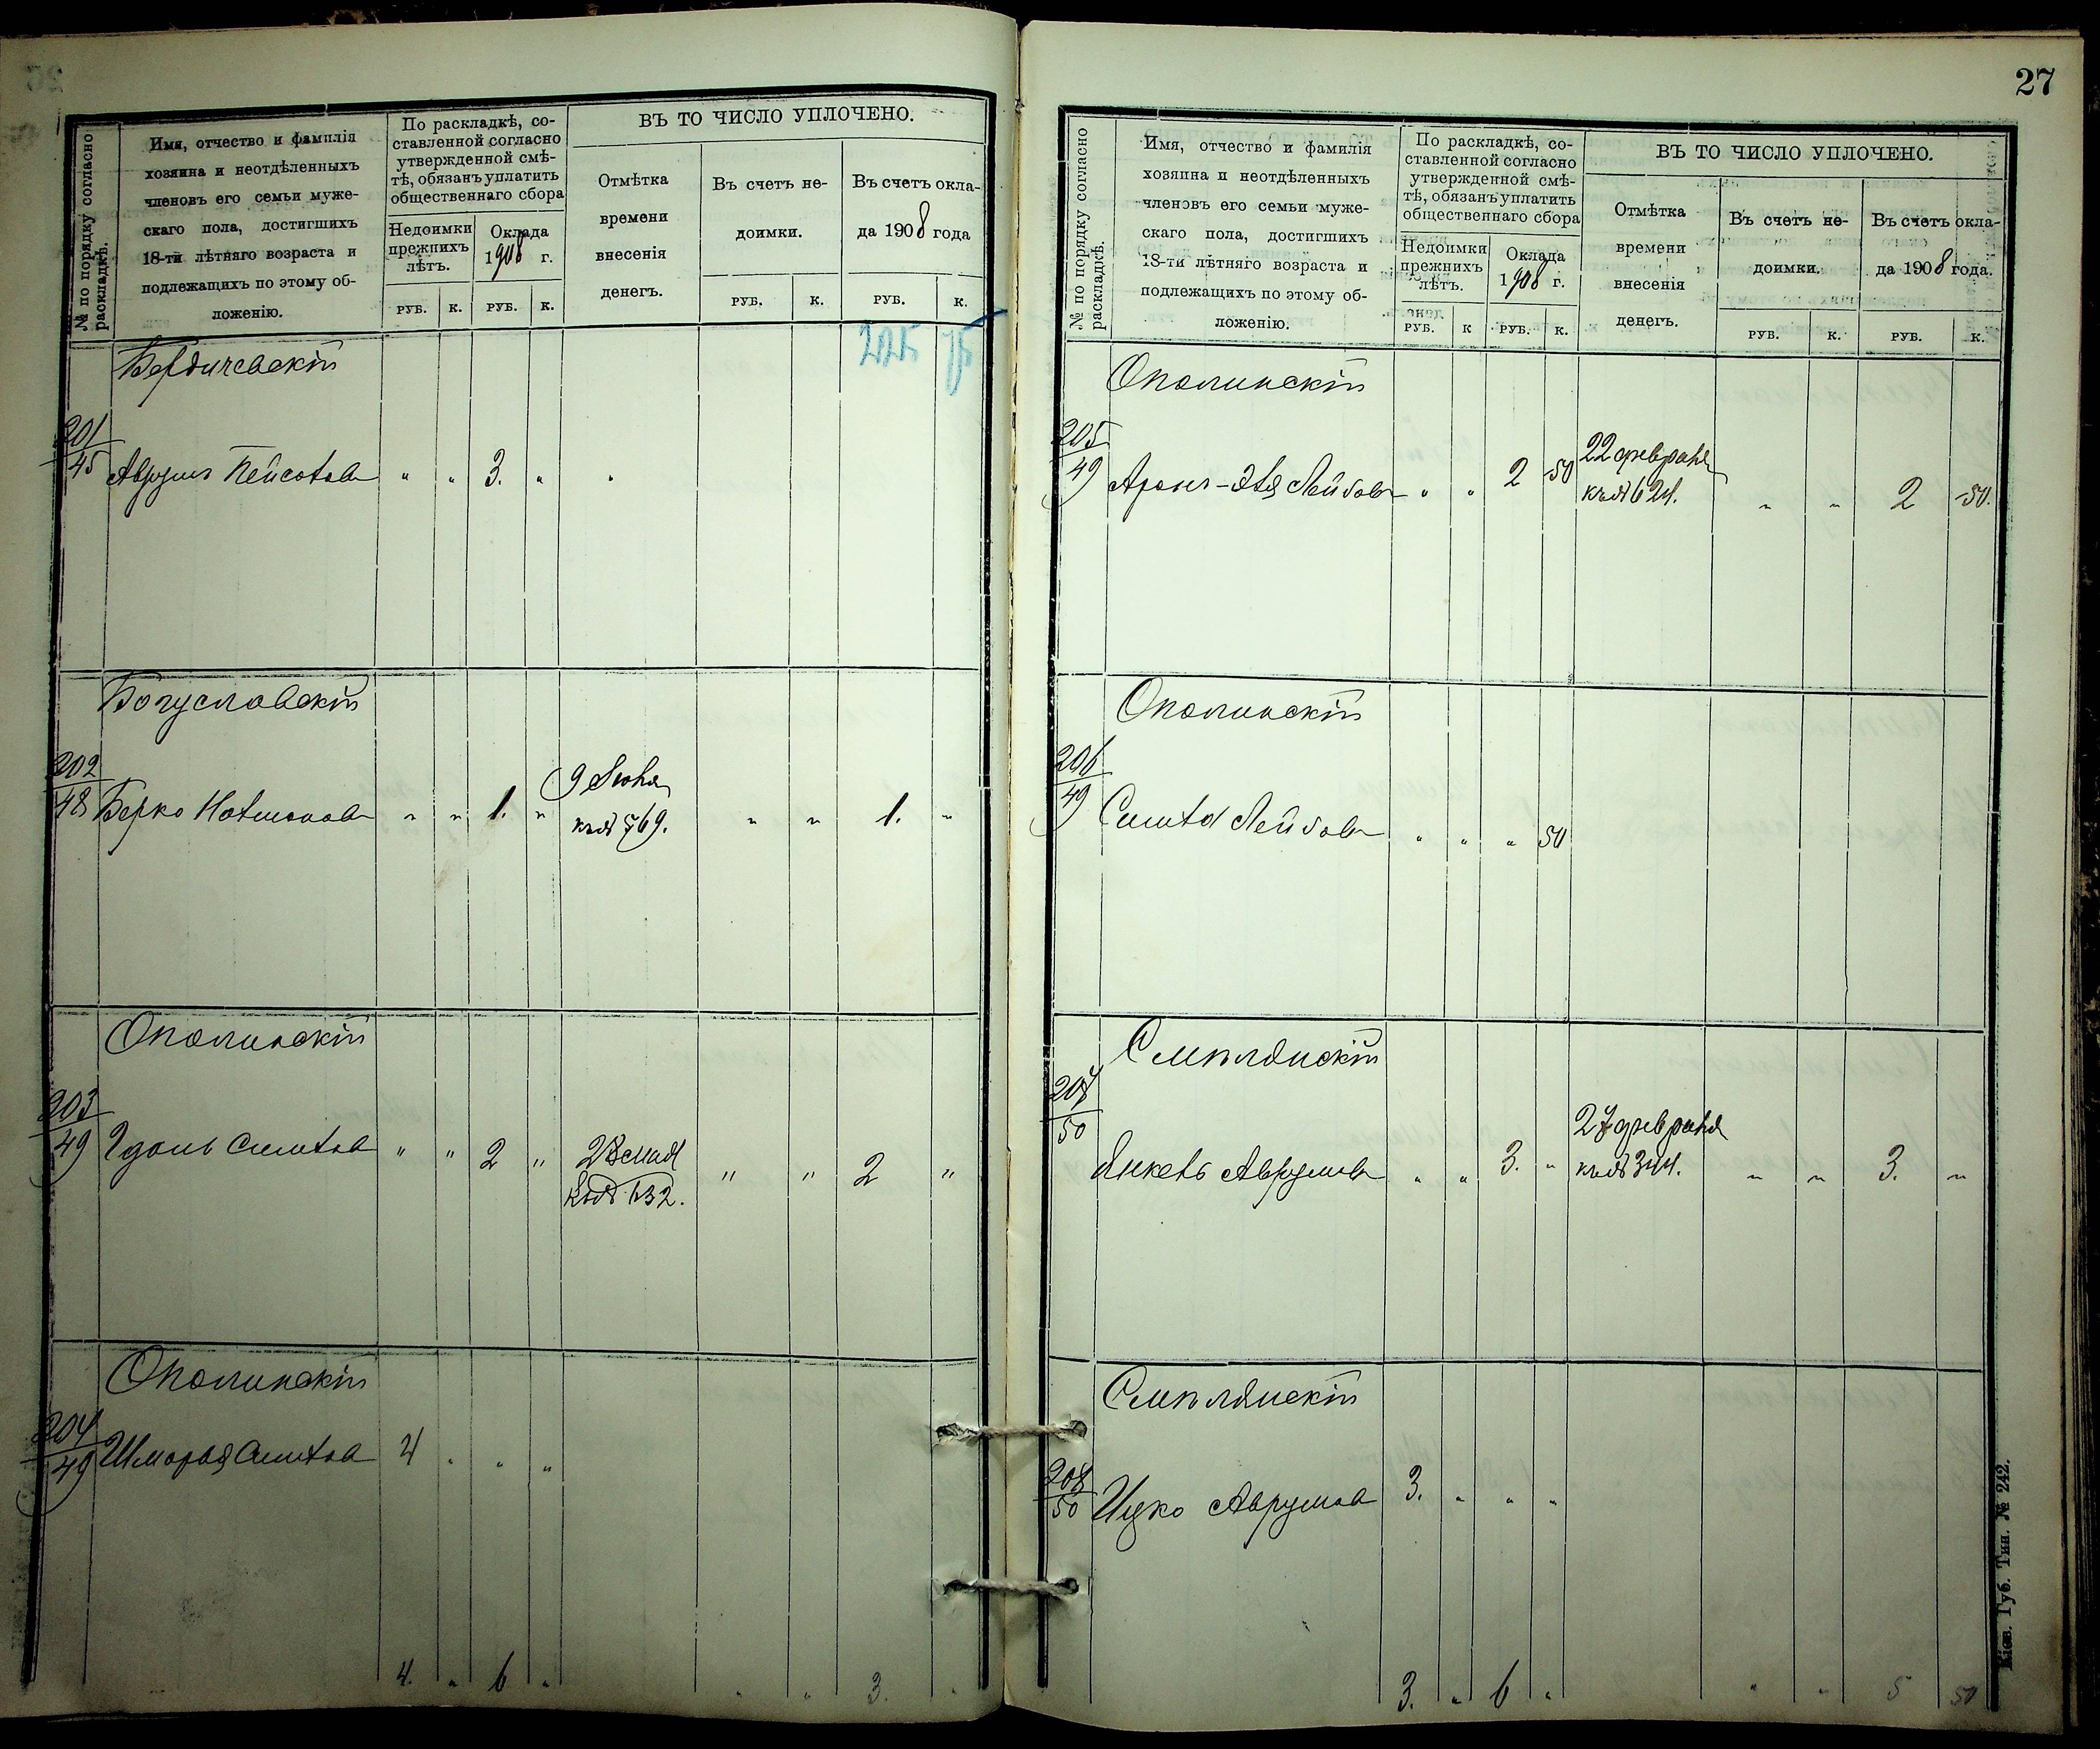 № по порядку согласно раскладкѣ.
Имя, отчество и фамилія
хозяина и неотдѣленныхъ
членовъ его семьи муже-
скаго пола, достигшихъ
18-ти лѣтняго возраста и
подлежащихъ по этому об-
ложенію.
По раскладкѣ, со-
ставленной согласно
утвержденной смѣ-
тѣ, обязанъ уплатить
общественнаго сбора
Недоимки
прежнихъ
лѣтъ.
Оклада
1908 г.
РУБ. К. РУБ. К.
ВЪ ТО ЧИСЛО УПЛОЧЕНО.
Отмѣтка
времени
внесенія
денегъ.
Въ счетъ не-
доимки.
Въ счетъ окла-
да 1908 года
РУБ. К. РУБ. К.
225 75
Бердичевскій
201/45 Аврумъ Пейсахов " " 3. "
Богуславскій
202/48 Берко Нотманов " " 1. " 9 Июня " " 1. "
къ № 569.
Ополинскій
203/49 " " 2 " 28 мая " " 2 "
къ № 132.
Ополинскій
204/49 4 " " "
4. " 6 " " " 3. "
27
№ по порядку согласно раскладкѣ.
Имя, отчество и фамилія
хозяина и неотдѣленныхъ
членовъ его семьи муже-
скаго пола, достигшихъ
18-ти лѣтняго возраста и
подлежащихъ по этому об-
ложенію.
По раскладкѣ, со-
ставленной согласно
утвержденной смѣ-
тѣ, обязанъ уплатить
общественнаго сбора
Недоимки
прежнихъ
лѣтъ.
Оклада
1908 г.
РУБ. К РУБ. К.
ВЪ ТО ЧИСЛО УПЛОЧЕНО.
Отмѣтка
времени
внесенія
денегъ.
Въ счетъ не-
доимки.
Въ счетъ окла-
да 1908 года.
РУБ. К. РУБ. К.
Ополинскій
205/49 Аронъ- Лейбов " " 2 50 22 февраля " " 2 50.
къ №
Ополинскій
206/49 Симха Лейбов " " " 50
Смѣлянскій
207/50 Янкель Аврумов " " 3. " 27 февраля " " 3. "
къ № 344.
Смѣлянскій
208/50 Ицко Аврумов 3. " " "
3. " 6 " " " 5 50
Кіев. Губ. Тип. № 242.